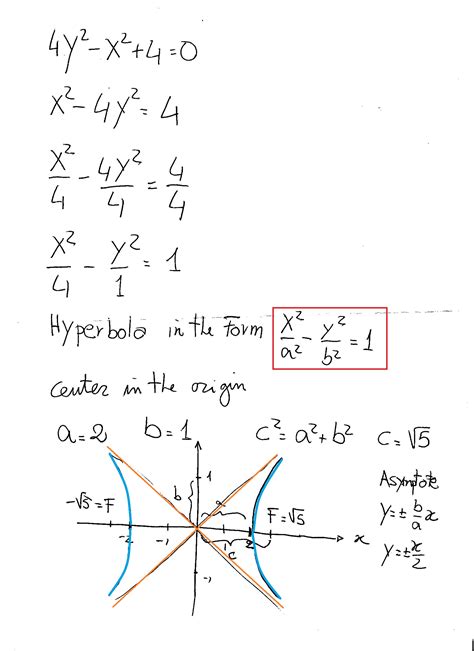 4y²-x²+4=0
x²-4y²=4
x²/4 - 4y²/4 = 4/4
x²/4 - y²/1 = 1
Hyperbola in the form x²/a² - y²/b² = 1
center in the origin
a=2 b=1 c²=a²+b² c=√5
Asymptote
y=± b/a x
y=± x/2
1
b
a
-√5=F
F=√5
-2 -1 1 2 x
c
-1